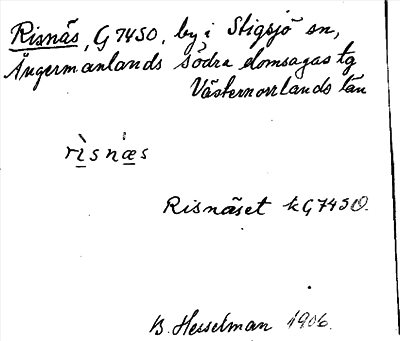 Risnäs, G 7450, by i Stigsjö sn,
Ångermanlands södra domsagas tg
Västernorrlands län
rìsnæ̀s
Risnäset k G 7450.
B. Hesselman 1906.